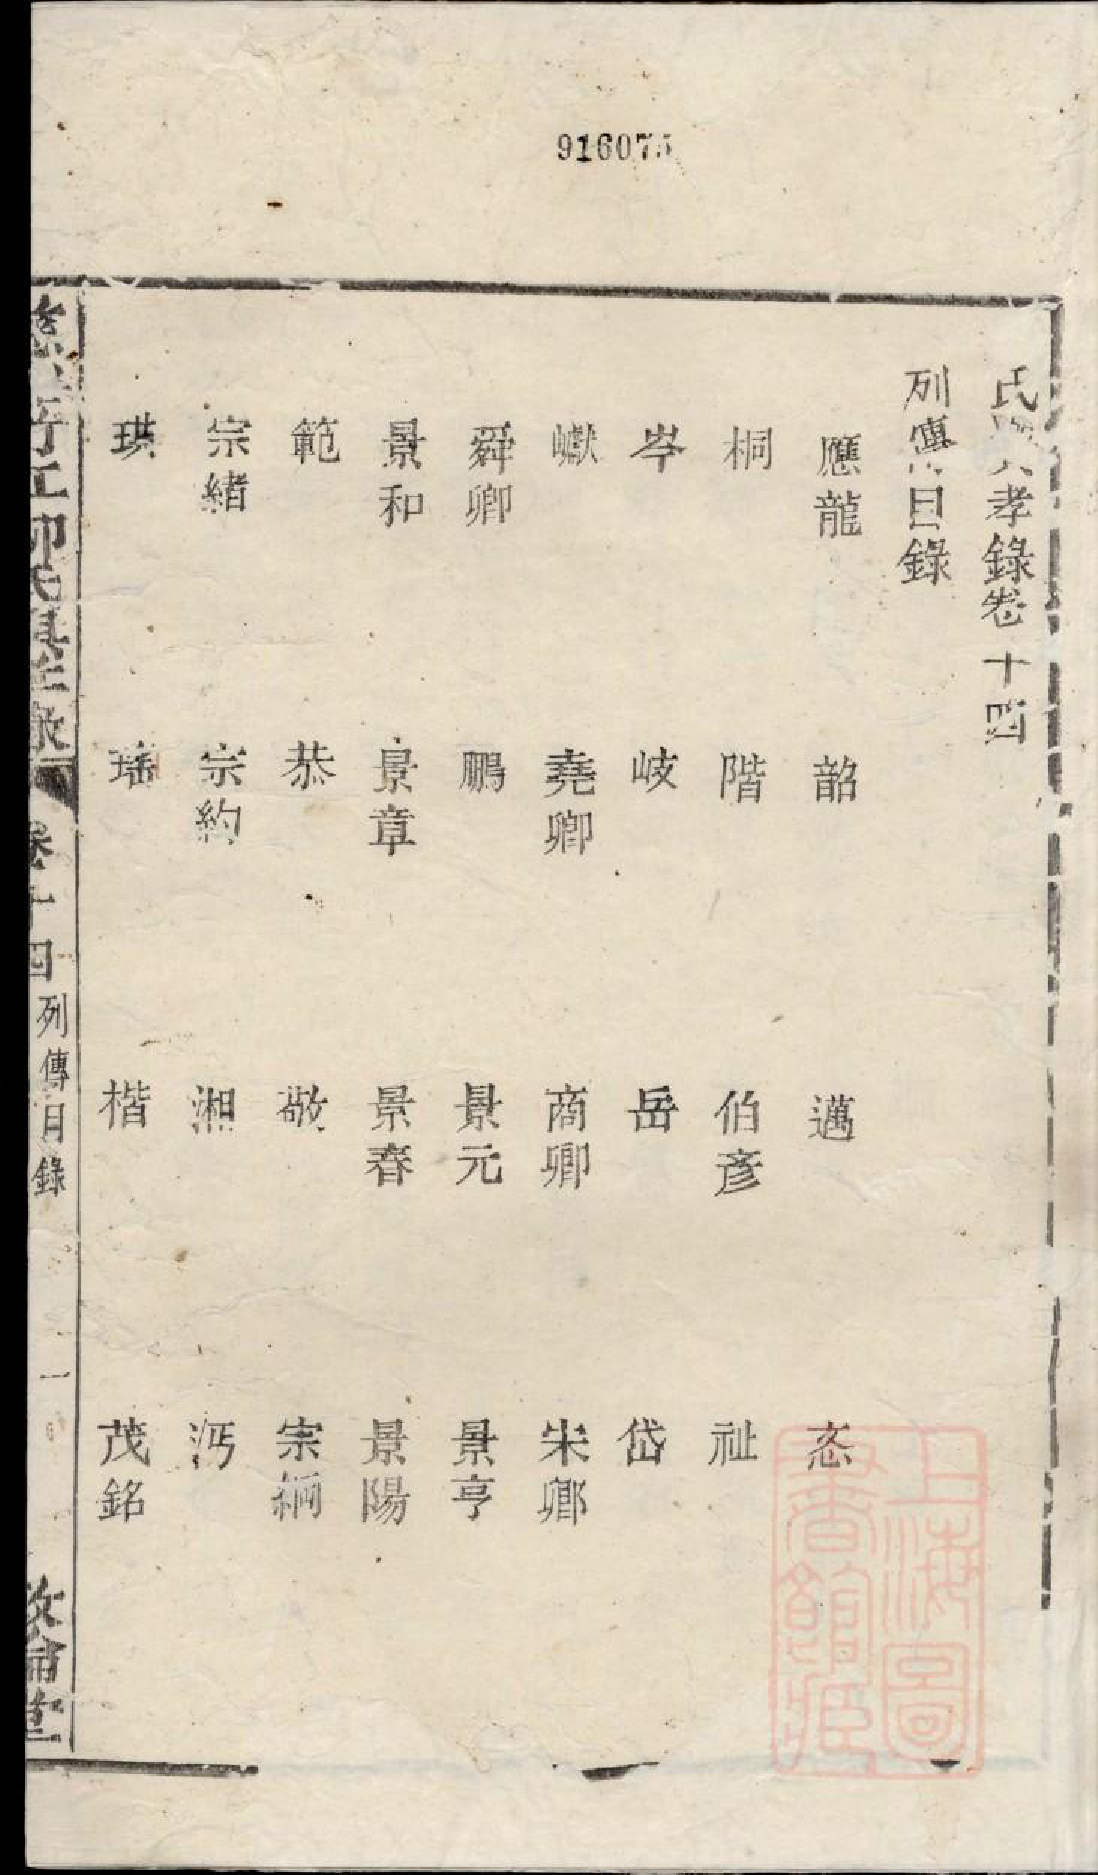 916075
氏 孝錄卷十四
列傳目錄
應龍 韶 邁 忞
桐 階 伯彥 祉
岑 岐 岳 岱
巘 堯卿 商卿 宋卿
舜卿 鵬 景元 景亨
景和 景章 景春 景陽
範 恭 敬 宗綱
宗緒 宗約 湘 沔
珙 瑤 楷 茂銘
卷十四 列傳目錄 一 敦倫堂
上海圖
書館藏